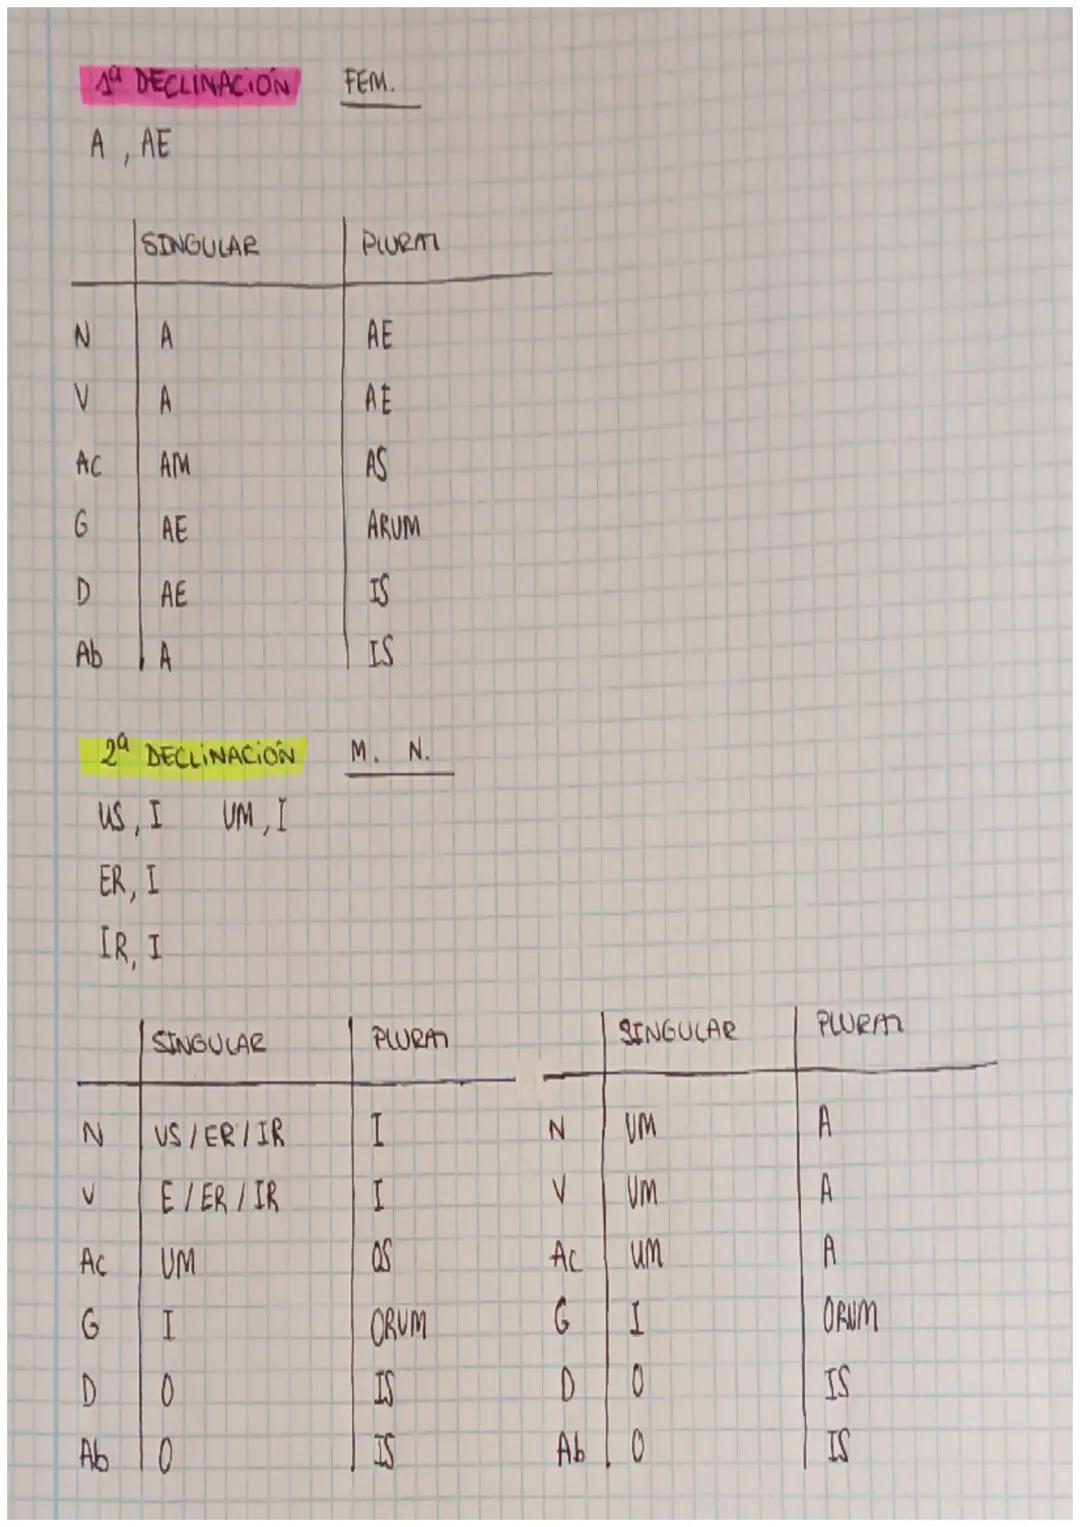 1ª DECLINACIÓN FEM.
A, AE
SINGULAR PLURAL
N A AE
V A AE
AC AM AS
G AE ARUM
D AE IS
Ab A IS
2ª DECLINACIÓN M. N.
US, I UM, I
ER, I
IR, I
SINGULAR PLURAL SINGULAR PLURAL
N US/ER/IR I N UM A
V E/ER/IR I V UM A
Ac UM OS Ac UM A
G I ORUM G I ORUM
D O IS D O IS
Ab O IS Ab O IS